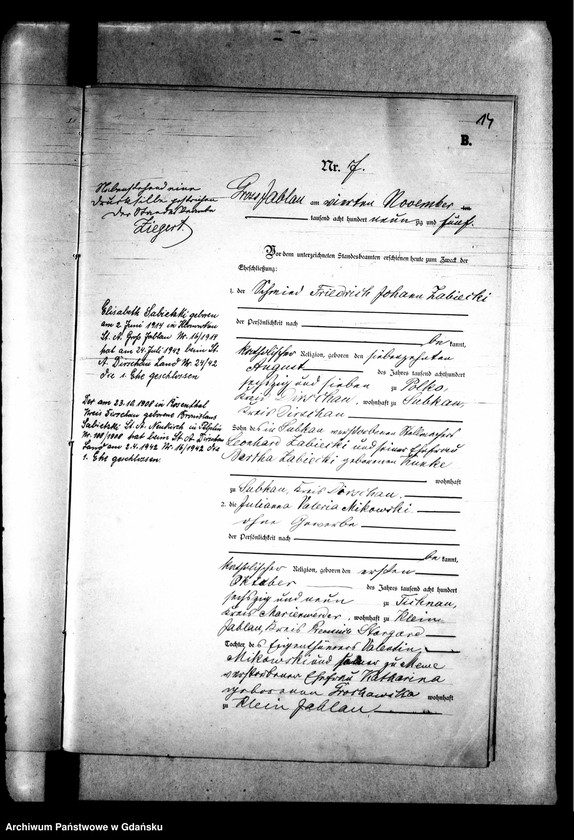 14
B.
Nr. 7.
Gross Jablau am vierten November
tausend acht hundert neun zig und fünf.
Nebenstehend eine
Druckstelle gestrichen
Der Standesbeamte
Ziegert.
Vor dem unterzeichneten Standesbeamten erschienen heute zum Zweck der
Eheschließung:
1. der Schmied Friedrich Johann Zabiecki
der Persönlichkeit nach
be kannt,
katholischer Religion, geboren den siebezehnten
August des Jahres tausend acht hundert
sechszig und sieben zu
Kreis Dirschau, wohnhaft zu Subkau,
Kreis Dirschau
Sohn des in Subkau verstorbenen
Leonhard Zabiecki und seiner Ehefrau
Bertha Zabiecki geborenen
wohnhaft
zu Subkau, Kreis Dirschau.
2. die Julianna Valeria Mikowski
ohne Gewerbe
der Persönlichkeit nach
be kannt,
katholischer Religion, geboren den ersten
Oktober des Jahres tausend acht hundert
sechszig und neun zu
Kreis Marienwerder, wohnhaft zu Klein
Jablau, Kreis Preussisch Stargard
Tochter des Eigenthümers Valentin
Mikowski und seiner zu Mewe
verstorbenen Ehefrau Katharina
geborenen wohnhaft
zu Klein Jablau
Elisabeth Sabietzki geboren
am 2. Juni 1914 in
St. A. Groß Jablau Nr. 16/1914
hat am 24. Juli 1942 beim St.
A. Dirschau Land Nr. 24/42
die 1. Ehe geschlossen
Der am 23.10.1908 in Rosenthal
Kreis Dirschau geborene Bronislaus
Sabietzki St. A. Neukirch in
Nr. 108/1908 hat beim St. A. Dirschau
Land am 2.4.1942 Nr. 16/1942 die
1. Ehe geschlossen.
Archiwum Państwowe w Gdańsku